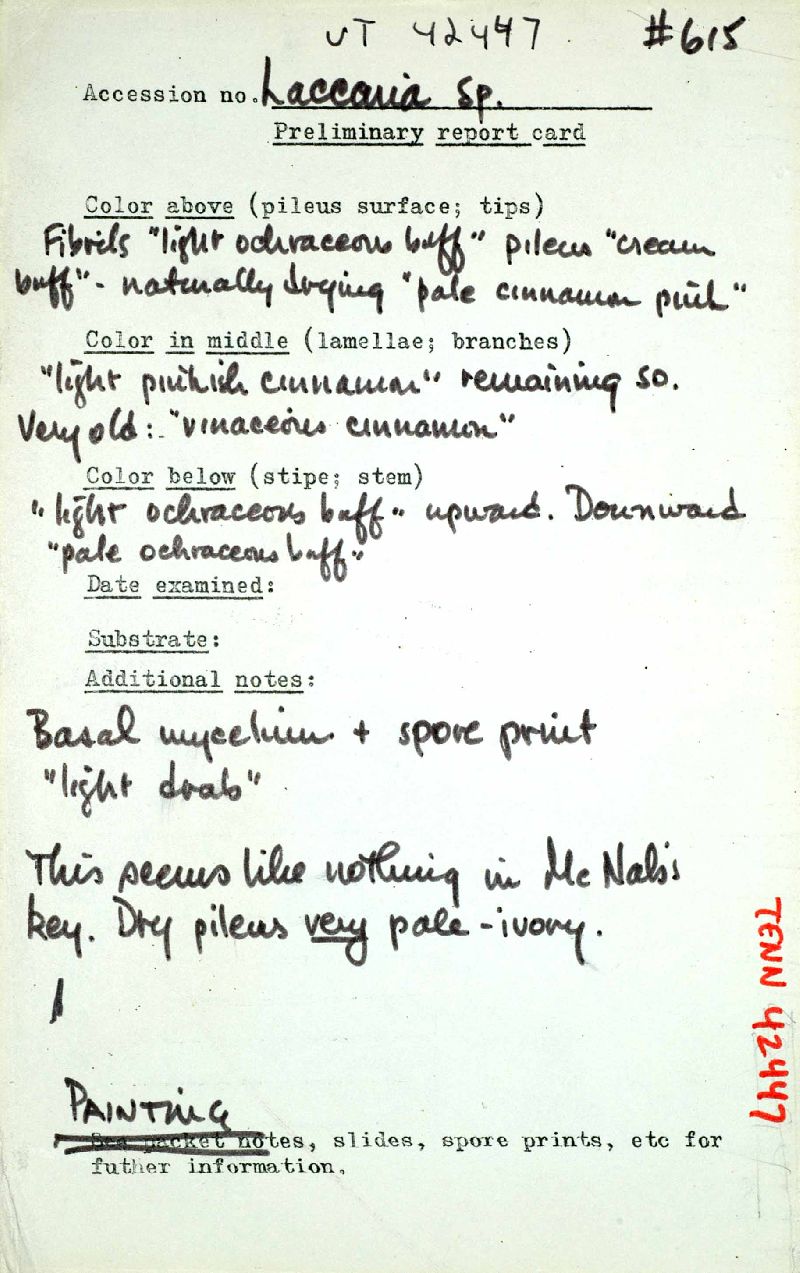 UT 42447 #615
Accession no. Laccaria sp.
Preliminary report card
Color above (pileus surface; tips)
Fibrils "light ochraceous buff" pileus "cream
buff" - naturally drying "pale cinnamon pink"
Color in middle (lamellae; branches)
"light pinkish cinnamon" remaining so.
Very old: "vinaceous cinnamon"
Color below (stipe; stem)
"light ochraceous buff" upward. Downward
"pale ochraceous buff"
Date examined:
Substrate:
Additional notes:
Basal mycelium + spore print
"light drab"
This seems like nothing in McNab's
key. Dry pileus very pale - ivory.
PAINTING
See packet notes, slides, spore prints, etc for
futher information.
TENN 42447